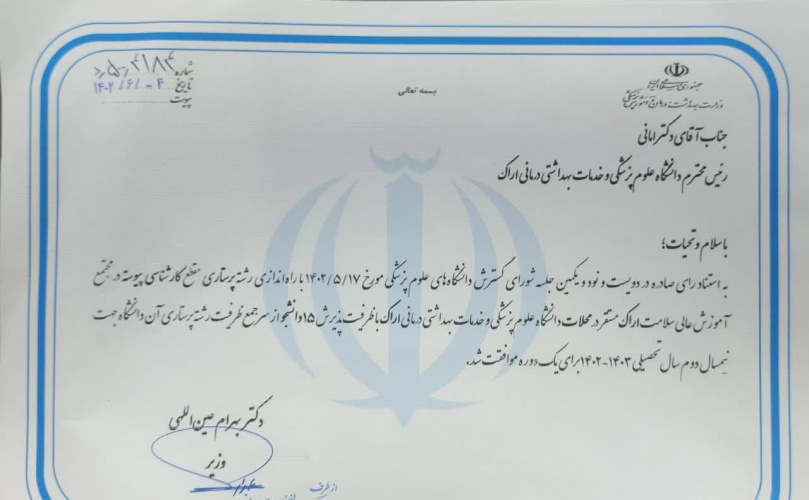 بسمه تعالی
جمهوری اسلامی ایران
وزارت بهداشت، درمان و آموزش پزشکی
شماره ۴۱۸۴/۵۰۵/د
تاریخ ۱۴۰۲/۶/۰۴
پیوست
جناب آقای دکتر امانی
رئیس محترم دانشگاه علوم پزشکی و خدمات بهداشتی درمانی اراک
با سلام و تحیات؛
به استناد رای صادره در دویست و نود و یکمین جلسه شورای گسترش دانشگاه های علوم پزشکی مورخ ۱۴۰۲/۵/۱۷ با راه اندازی رشته پرستاری مقطع کارشناسی پیوسته در مجتمع
آموزش عالی سلامت اراک مستقر در محلات دانشگاه علوم پزشکی و خدمات بهداشتی درمانی اراک با ظرفیت پذیرش ۱۵ دانشجو از سرجمع ظرفیت رشته پرستاری آن دانشگاه جهت
نیمسال دوم سال تحصیلی ۱۴۰۳-۱۴۰۲ برای یک دوره موافقت شد.
دکتر بهرام عین اللهی
وزیر
از طرف